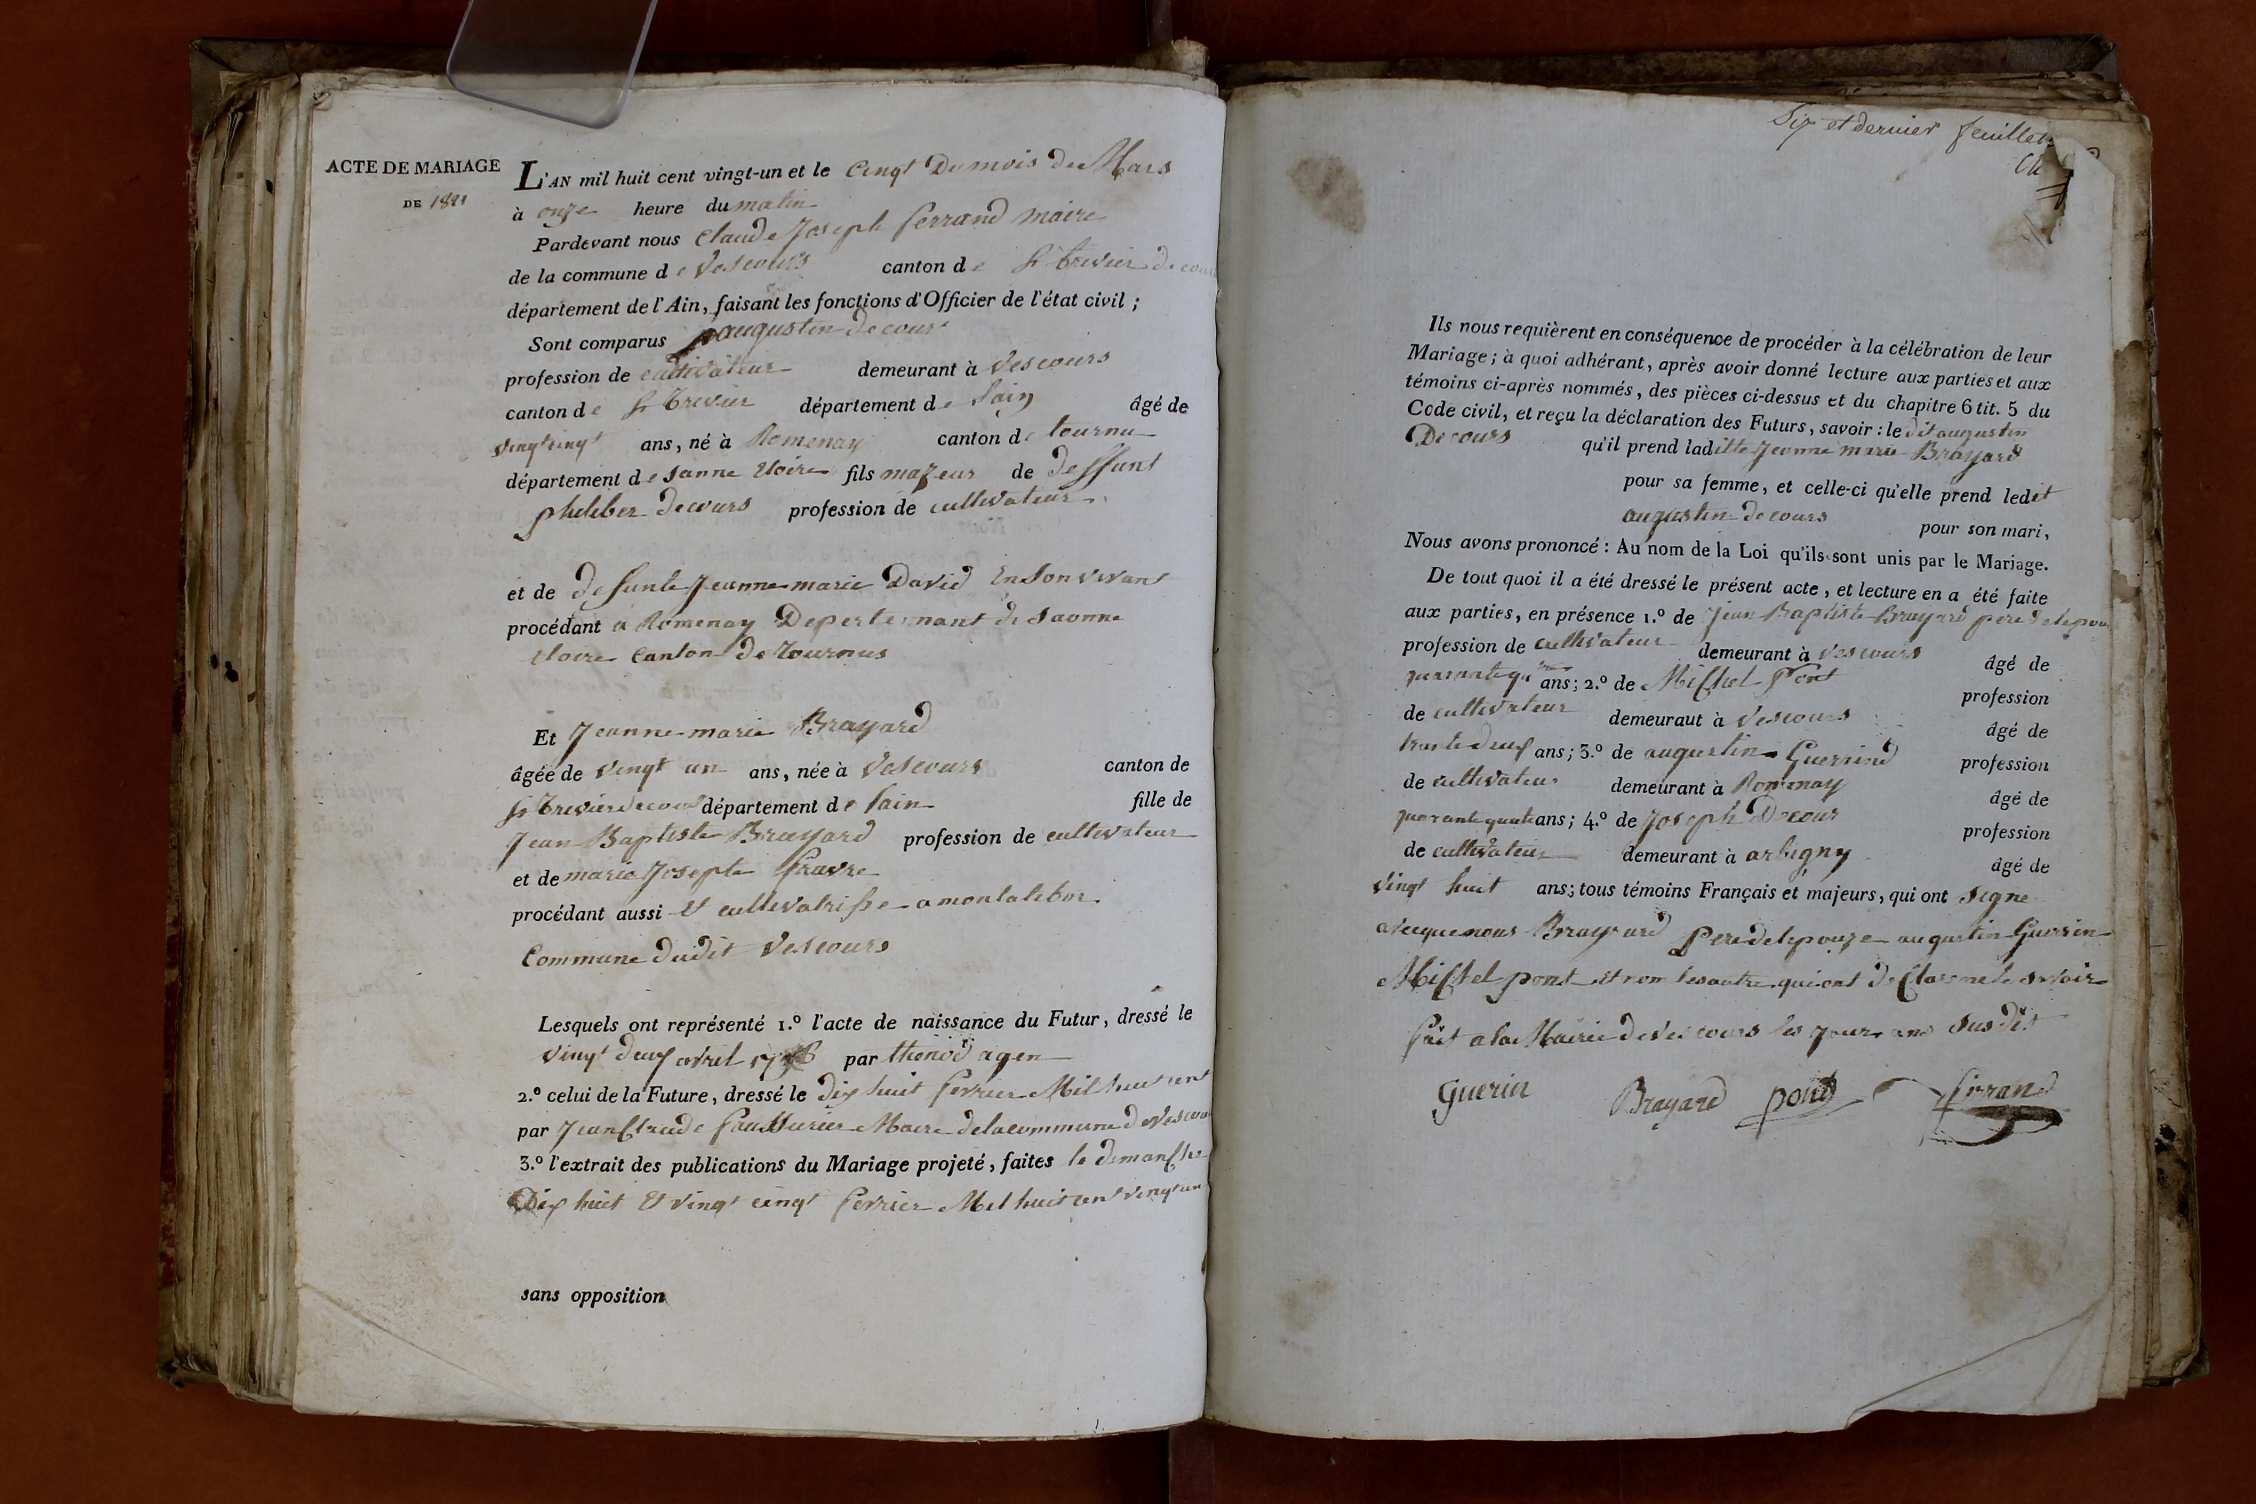 ACTE DE MARIAGE
DE 1821
L'AN mil huit cent vingt-un et le cinqt Du mois de Mars
à onze heure du matin
Pardevant nous Claude Joseph ferrand maire
de la commune de Vescours canton de St trivier de cour
département de l'Ain, faisant les fonctions d'Officier de l'état civil ;
Sont comparus augustin decour
profession de cultivateur demeurant à Vescours
canton de St trivier département de lain âgé de
vingt cinqt ans, né à Romenay canton de tournu
département de sanne eloire fils mageur de deffunt
philiber decours profession de cultivateur
et de defunte Jeanne marie David En son vivant
procédant a Romenay Depertemant de Saonne
eloire canton de tournus
Et Jeanne marie Brayard
âgée de vingt un ans, née à Vescours canton de
St trivier de cour département de lain fille de
Jean Baptiste Brayard profession de cultivateur
et de marie Josepte favre
procédant aussi et cultivatrisse a
Commune dudit Vescours
Lesquels ont représenté 1.º l'acte de naissance du Futur, dressé le
vingt deux avril par thenod agen
2.º celui de la Future, dressé le dix huit fevrier Mil huit cent
par Jean Claude Maire de la commune de Vescour
3.º l'extrait des publications du Mariage projeté, faites le dimanche
Dix huit et vingt cinqt fevrier Mil huit cent vingt un
sans opposition
Six et dernier feuillet
Ils nous requièrent en conséquence de procéder à la célébration de leur
Mariage ; à quoi adhérant, après avoir donné lecture aux parties et aux
témoins ci-après nommés, des pièces ci-dessus et du chapitre 6 tit. 5 du
Code civil, et reçu la déclaration des Futurs, savoir : le dit augustin
Decours qu'il prend laditte Jeanne marie Brayard
pour sa femme, et celle-ci qu'elle prend ledit
augustin decours pour son mari,
Nous avons prononcé : Au nom de la Loi qu'ils sont unis par le Mariage.
De tout quoi il a été dressé le présent acte, et lecture en a été faite
aux parties, en présence 1.º de Jean Baptiste Brayard pere de lepou
profession de cultivateur demeurant à Vescours âgé de
quarante ans ; 2.º de Michel Pont profession
de cultivateur demeuraut à Vescours âgé de
trante deux ans ; 3.º de augustin Guerrind profession
de cultivateur demeurant à Romenay âgé de
quarante quatre ans ; 4.º de Joseph Decour profession
de cultivateur demeurant à arbigny âgé de
vingt huit ans ; tous témoins Français et majeurs, qui ont signe
avecque nous Brayard pere de lepouze augustin Guerrin
Michel pont et non les autre qui ont declare ne le savoir
fait a la Mairie de Vescours les jour an susdit
Guerin Brayard pont ferrand